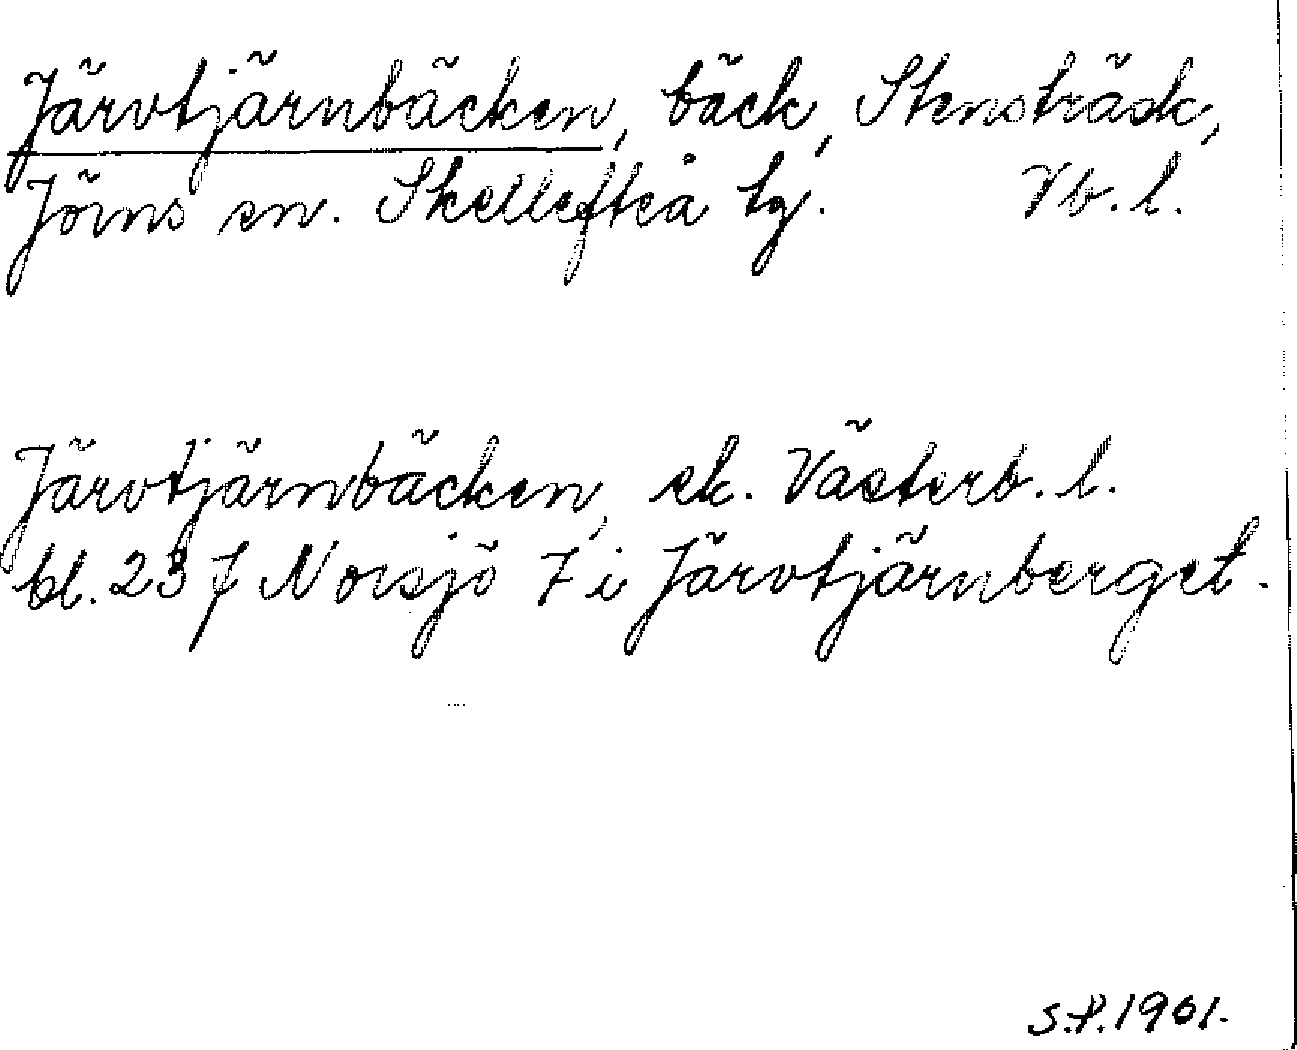 Järvtjärnbäcken, bäck, Stensträsk,
Jörns sn. Skellefteå tg. Vb. l.
Järvtjärnbäcken, ek. Västerb. l.
bl. 23 f Norsjö 7 i Järvtjärnberget.
S.P. 1961.